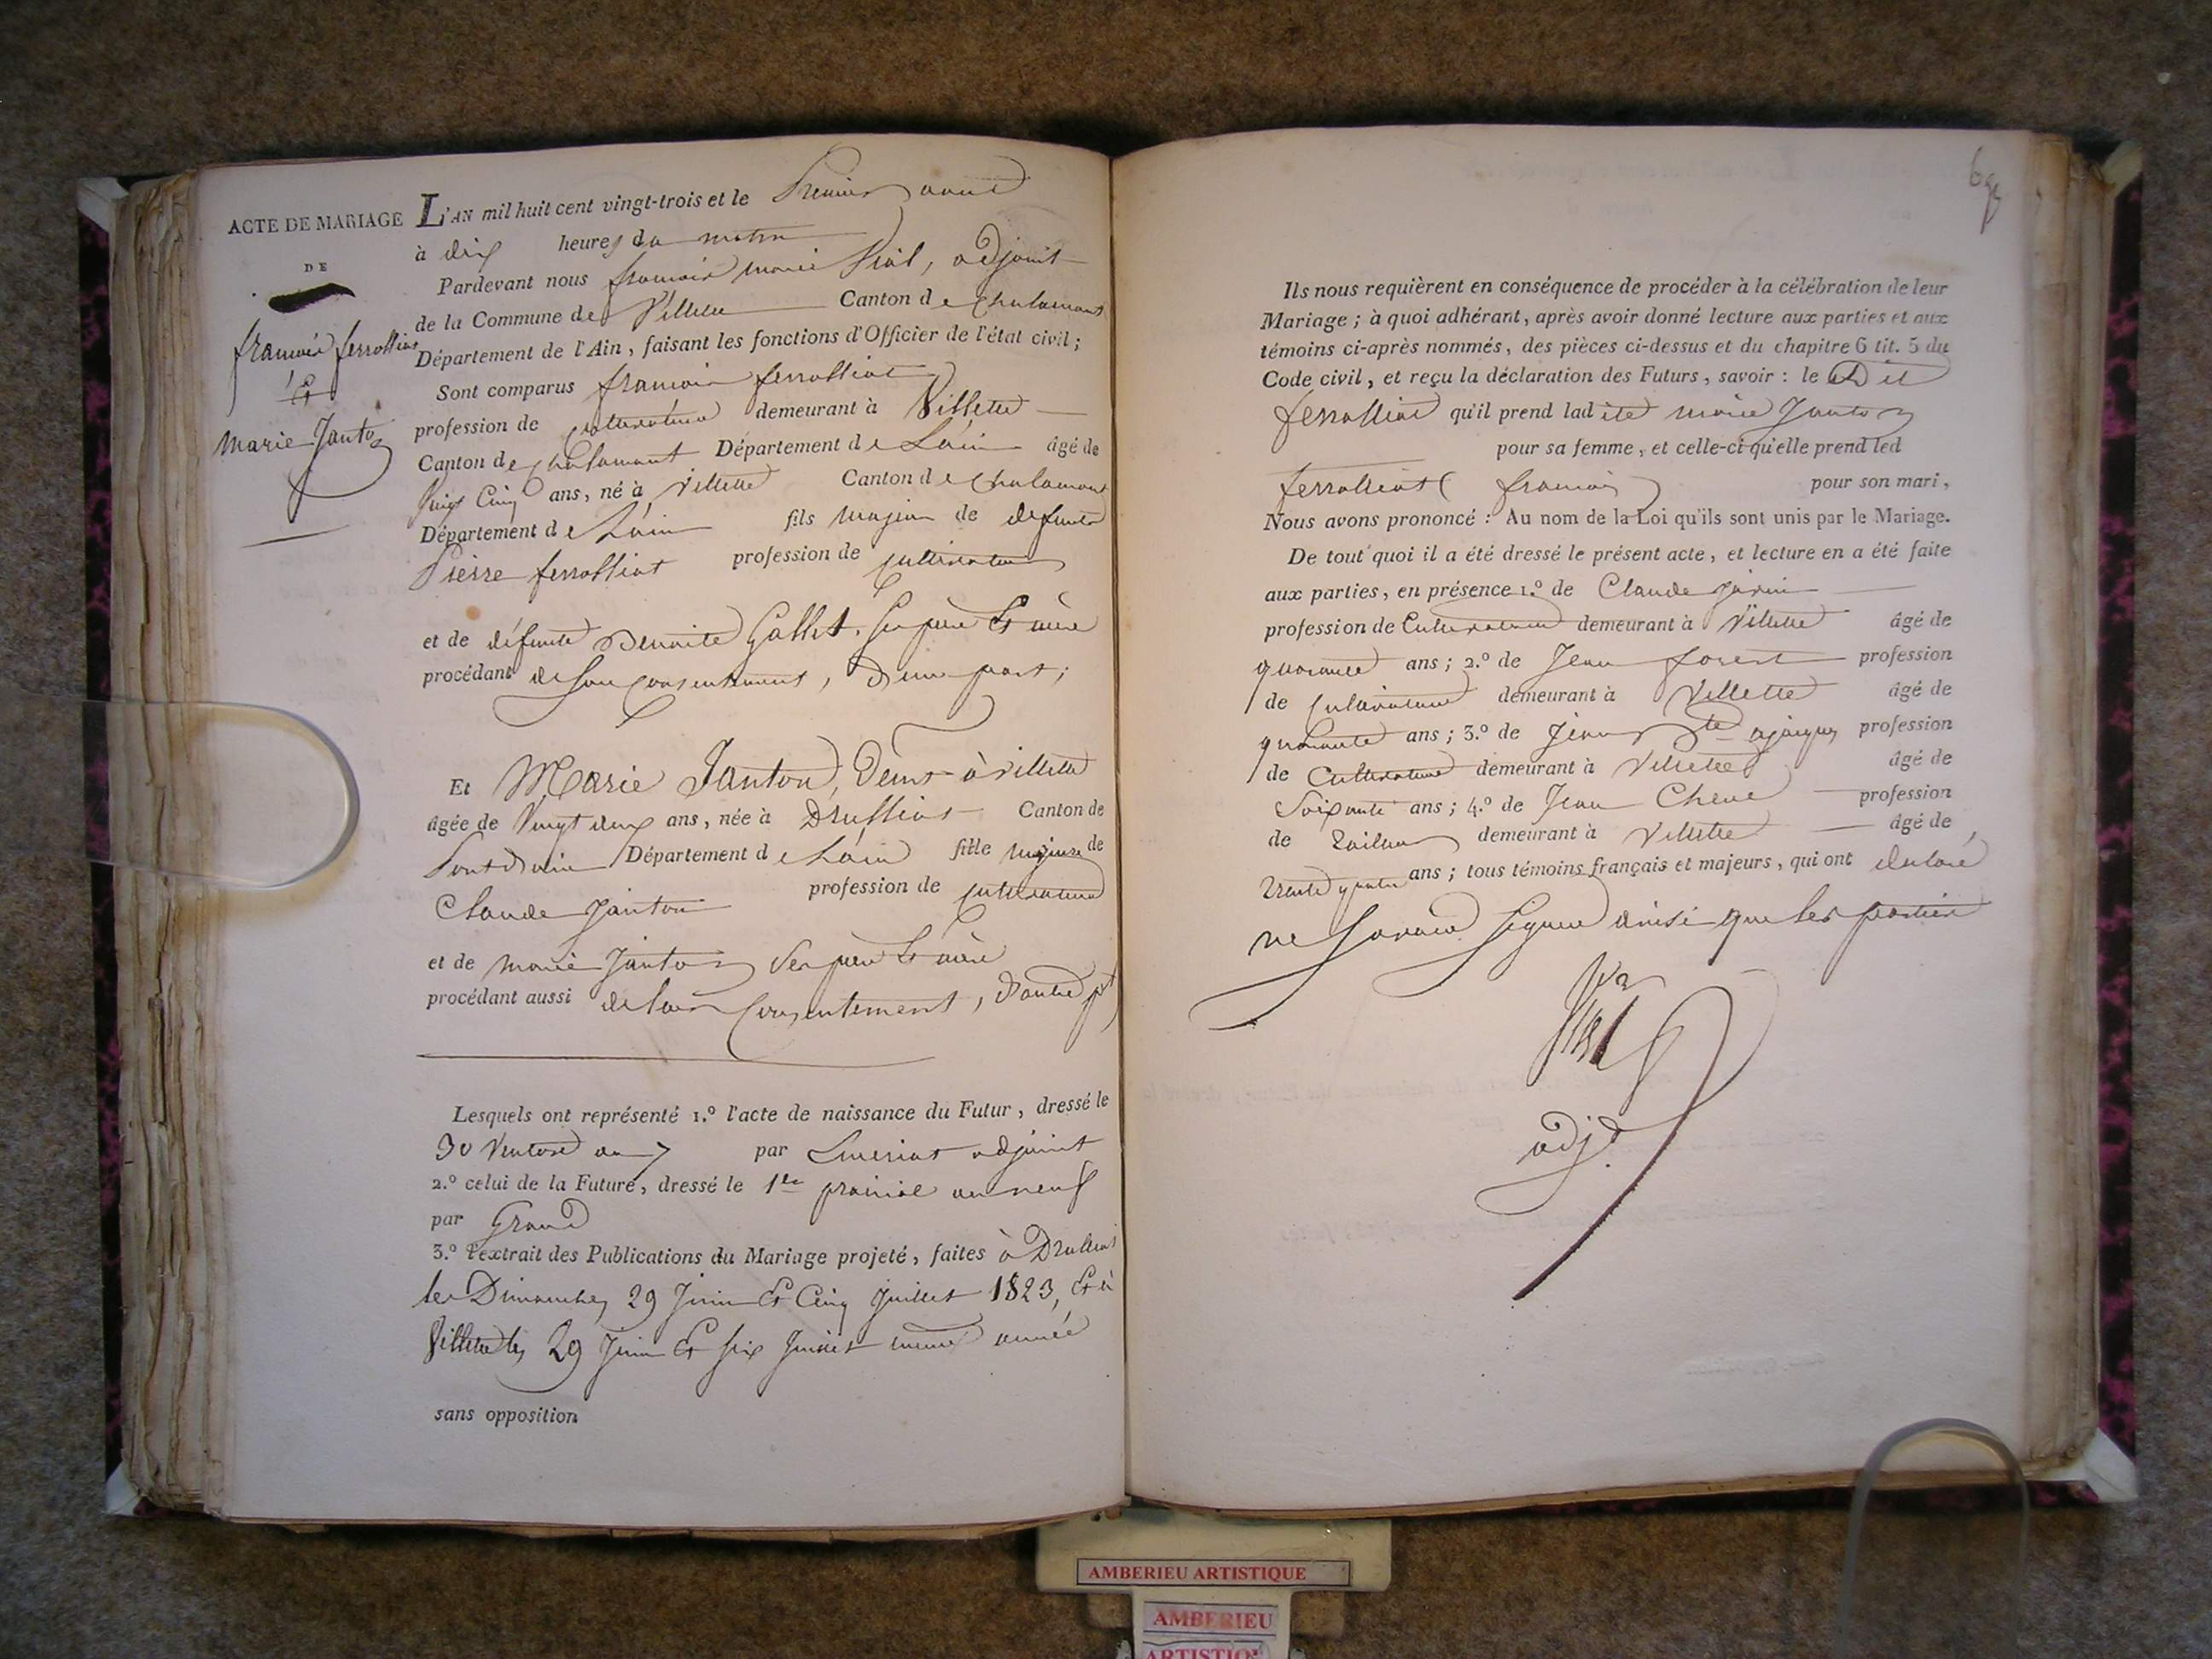 ACTE DE MARIAGE
DE
françois ferrolliat
Et
Marie Janton
L'AN mil huit cent vingt-trois et le Premier aout
à dix heures du matin
Pardevant nous françois marie Vial, adjoint
de la Commune de Villette Canton de Chalamont
Département de l'Ain, faisant les fonctions d'Officier de l'état civil;
Sont comparus françois ferrolliat
profession de cultivateur demeurant à Villette
Canton de Chalamont Département de L'ain âgé de
Vingt Cinq ans, né à Villette Canton de Chalamont
Département de L'ain fils majeur de defunts
Pierre ferrolliat profession de cultivateur
et de défunte Benoite Gallet. Ses père Et mère
procédant de Son Consentement, D'une part;
Et Marie Janton, Demt à villette
âgée de Vingt deux ans, née à Druillias Canton de
Pont Dain Département de L'ain fille majeure de
Claude Janton profession de cultivateur
et de marie Janton Ses père Et mère
procédant aussi de leur Consentement, D'autre pt
Lesquels ont représenté 1.º l'acte de naissance du Futur, dressé le
30 Ventose an 7 par adjoint
2.º celui de la Future, dressé le 1er prairial an neuf
par Grand
3.º l'extrait des Publications du Mariage projeté, faites à Druillias
les Dimanches 29 Juin Et Cinq Juillet 1823, Et à
Villette les 29 Juin Et Six Juillet même année
sans opposition
Ils nous requièrent en conséquence de procéder à la célébration de leur
Mariage; à quoi adhérant, après avoir donné lecture aux parties et aux
témoins ci-après nommés, des pièces ci-dessus et du chapitre 6 tit. 5 du
Code civil, et reçu la déclaration des Futurs, savoir: le Dit
ferrolliat qu'il prend ladite marie Janton
pour sa femme, et celle-ci qu'elle prend led
ferrolliat (françois) pour son mari,
Nous avons prononcé: Au nom de la Loi qu'ils sont unis par le Mariage.
De tout quoi il a été dressé le présent acte, et lecture en a été faite
aux parties, en présence 1.º de Claude
profession de Cultivateur demeurant à Villette âgé de
quarante ans; 2.º de Jean forest profession
de Cultivateur demeurant à Villette âgé de
quarante ans; 3.º de Jean Bte profession
de Cultivateur demeurant à Villette âgé de
Soixante ans; 4.º de Jean Chene profession
de Tailleur demeurant à Villette âgé de
trente quatre ans; tous témoins français et majeurs, qui ont declaré
ne Savoir Signer ainsi que les parties
Vial
adjt
AMBERIEU ARTISTIQUE
AMBERIEU
ARTISTIQUE